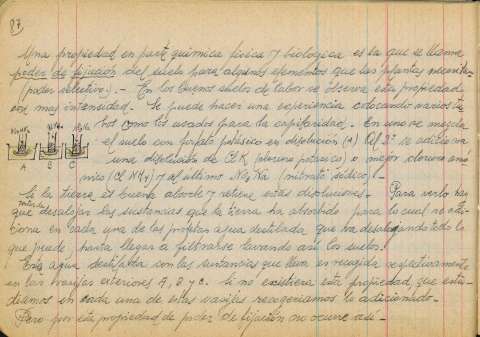 87
Una propiedad en parte química física y biológica es la que se llama
poder de fijación del suelo para algunos elementos que las plantas necesita-
(poder selectivo). - En los buenos suelos de labor se observa esta propiedad
con mas intensidad. Se puede hacer una experiencia colocando varios tu-
bos como los usados para la capilaridad. En uno se mezcla
el suelo con fosfato potásico en disolución (A) Al 2º se adiciona
una disolución de ClK (cloruro potasico) o mejor cloruro amó-
nico (Cl NH4) y al ultimo NO3Na (nitrato sódico).-
A B C
Si la tierra es buena absorbe y retiene estas disoluciones. Para verlo hay
que desalojar las sustancias que la tierra ha absorbido para lo cual se adi-
ciona en cada una de las probetas agua destilada que va desalojando todo lo
que puede hasta llegar a filtrarse lavando asi los suelos.
Esta agua destilada con las sustancias que lleva es recogida respectivamente
en las vasijas exteriores A, B y C. Si no existiera esta propiedad, que estu-
diamos en cada una de estas vasijas recogeriamos lo adicionado.-
Pero por esta propiedad de poder de fijación no ocurre asi-